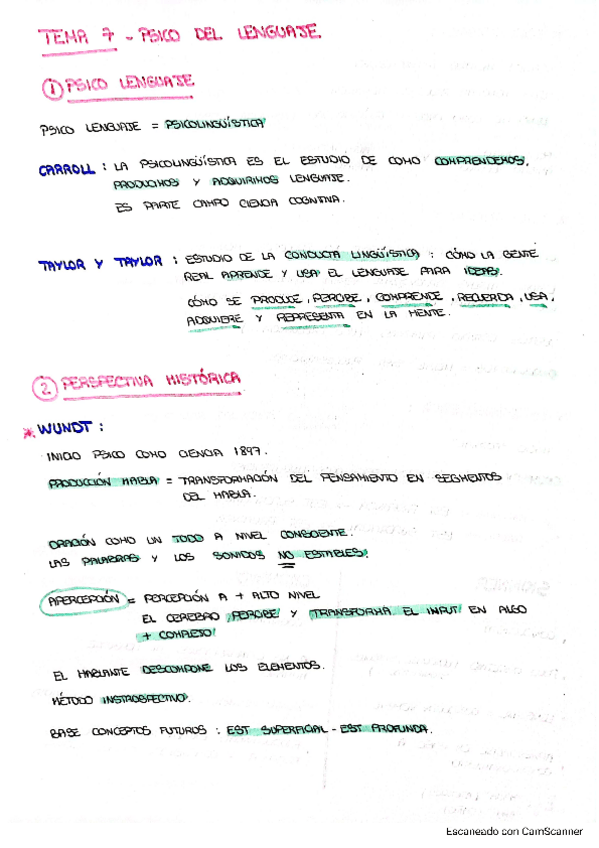 TEMA 7 - PSICO DEL LENGUAJE
① PSICO LENGUAJE
PSICO LENGUAJE = PSICOLINGÜÍSTICA
CARROLL : LA PSICOLINGÜÍSTICA ES EL ESTUDIO DE COMO COMPRENDEMOS,
PRODUCIMOS Y ADQUIRIMOS LENGUAJE.
ES PARTE CAMPO CIENCIA COGNITIVA.
TAYLOR Y TAYLOR : ESTUDIO DE LA CONDUCTA LINGÜÍSTICA : CÓMO LA GENTE
REAL APRENDE Y USA EL LENGUAJE PARA IDEAS.
CÓMO SE PRODUCE, PERCIBE, COMPRENDE, RECUERDA, USA,
ADQUIERE Y REPRESENTA EN LA MENTE.
② PERSPECTIVA HISTÓRICA
* WUNDT :
INICIO PSICO COMO CIENCIA 1897.
PRODUCCIÓN HABLA = TRANSFORMACIÓN DEL PENSAMIENTO EN SEGMENTOS
DEL HABLA.
ORACIÓN COMO UN TODO A NIVEL CONSCIENTE.
LAS PALABRAS Y LOS SONIDOS NO ESTABLES.
APERCEPCIÓN = PERCEPCIÓN A + ALTO NIVEL
EL CEREBRO PERCIBE Y TRANSFORMA EL INPUT EN ALGO
+ COMPLETO
EL HABLANTE DESCOMPONE LOS ELEMENTOS.
MÉTODO INSTROSPECTIVO.
BASE CONCEPTOS FUTUROS : EST SUPERFICIAL - EST PROFUNDA.
Escaneado con CamScanner